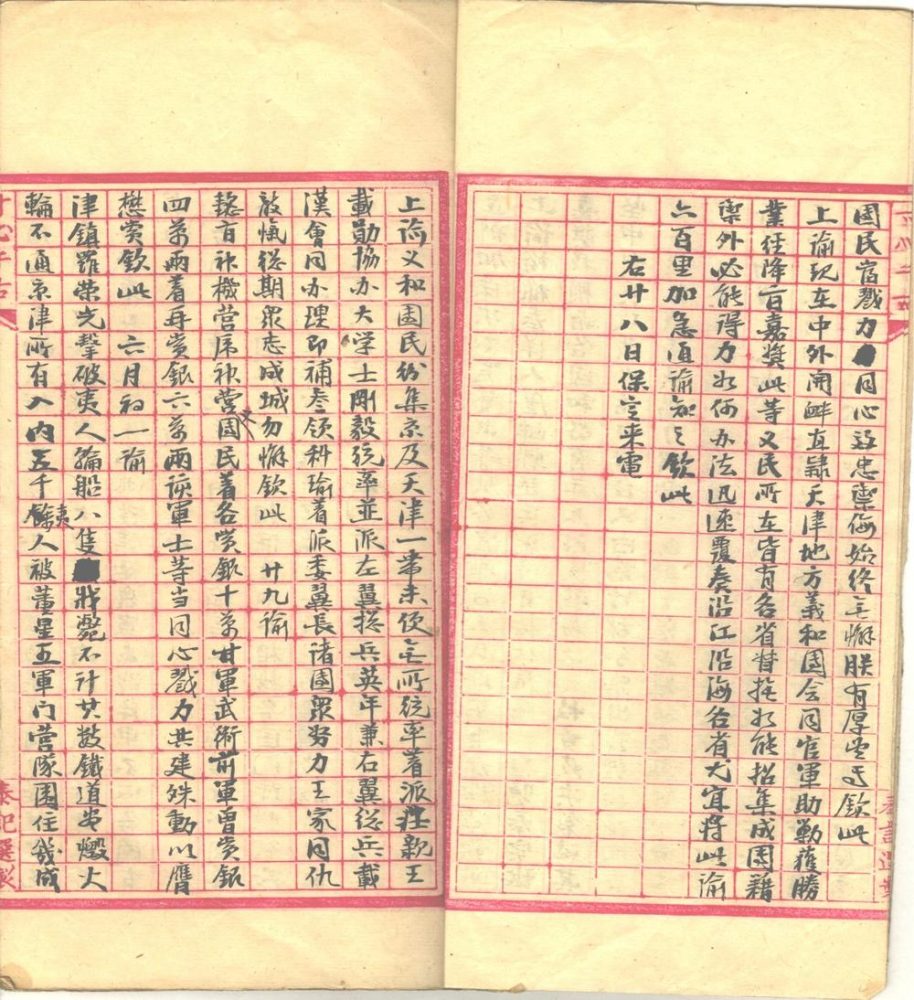 團民當戮力同心這忠禦侮始終無懈朕有厚望焉欽此
上諭現在中外開衅直隸天津地方義和團會同官軍助勦獲勝
業經降旨嘉獎此等义民所在皆有各省督撫如能招集成團藉
禦外必能得力如何办法迅速覆奏沿江沿海各省尤宜將此諭
六百里加急通諭知之欽此
右廿八日保定来電
上諭义和團民紛集京及天津一带未便無所統率著派莊親王
載勛協办大学士剛毅統率並派左翼捴兵英年兼右翼總兵載
漢會同办理印補叅領科瑜着派委翼長諸團眾努力王家同仇
敌愾總期眾志成城勿懈欽此 廿九諭
懿旨神機營虎神營团民著各賞銀十萬甘軍武術前軍曾賞銀
四萬两着再賞銀六萬两該軍士等当同心戮力共建殊勳以膺
懋賞欽此 六月初一諭
津鎮羅榮光擊破夷人輪船八隻戕斃不计其数鐵道尚燬火
輪不通京津所有入内五千餘夷人被董星五軍门营隊围住幾成